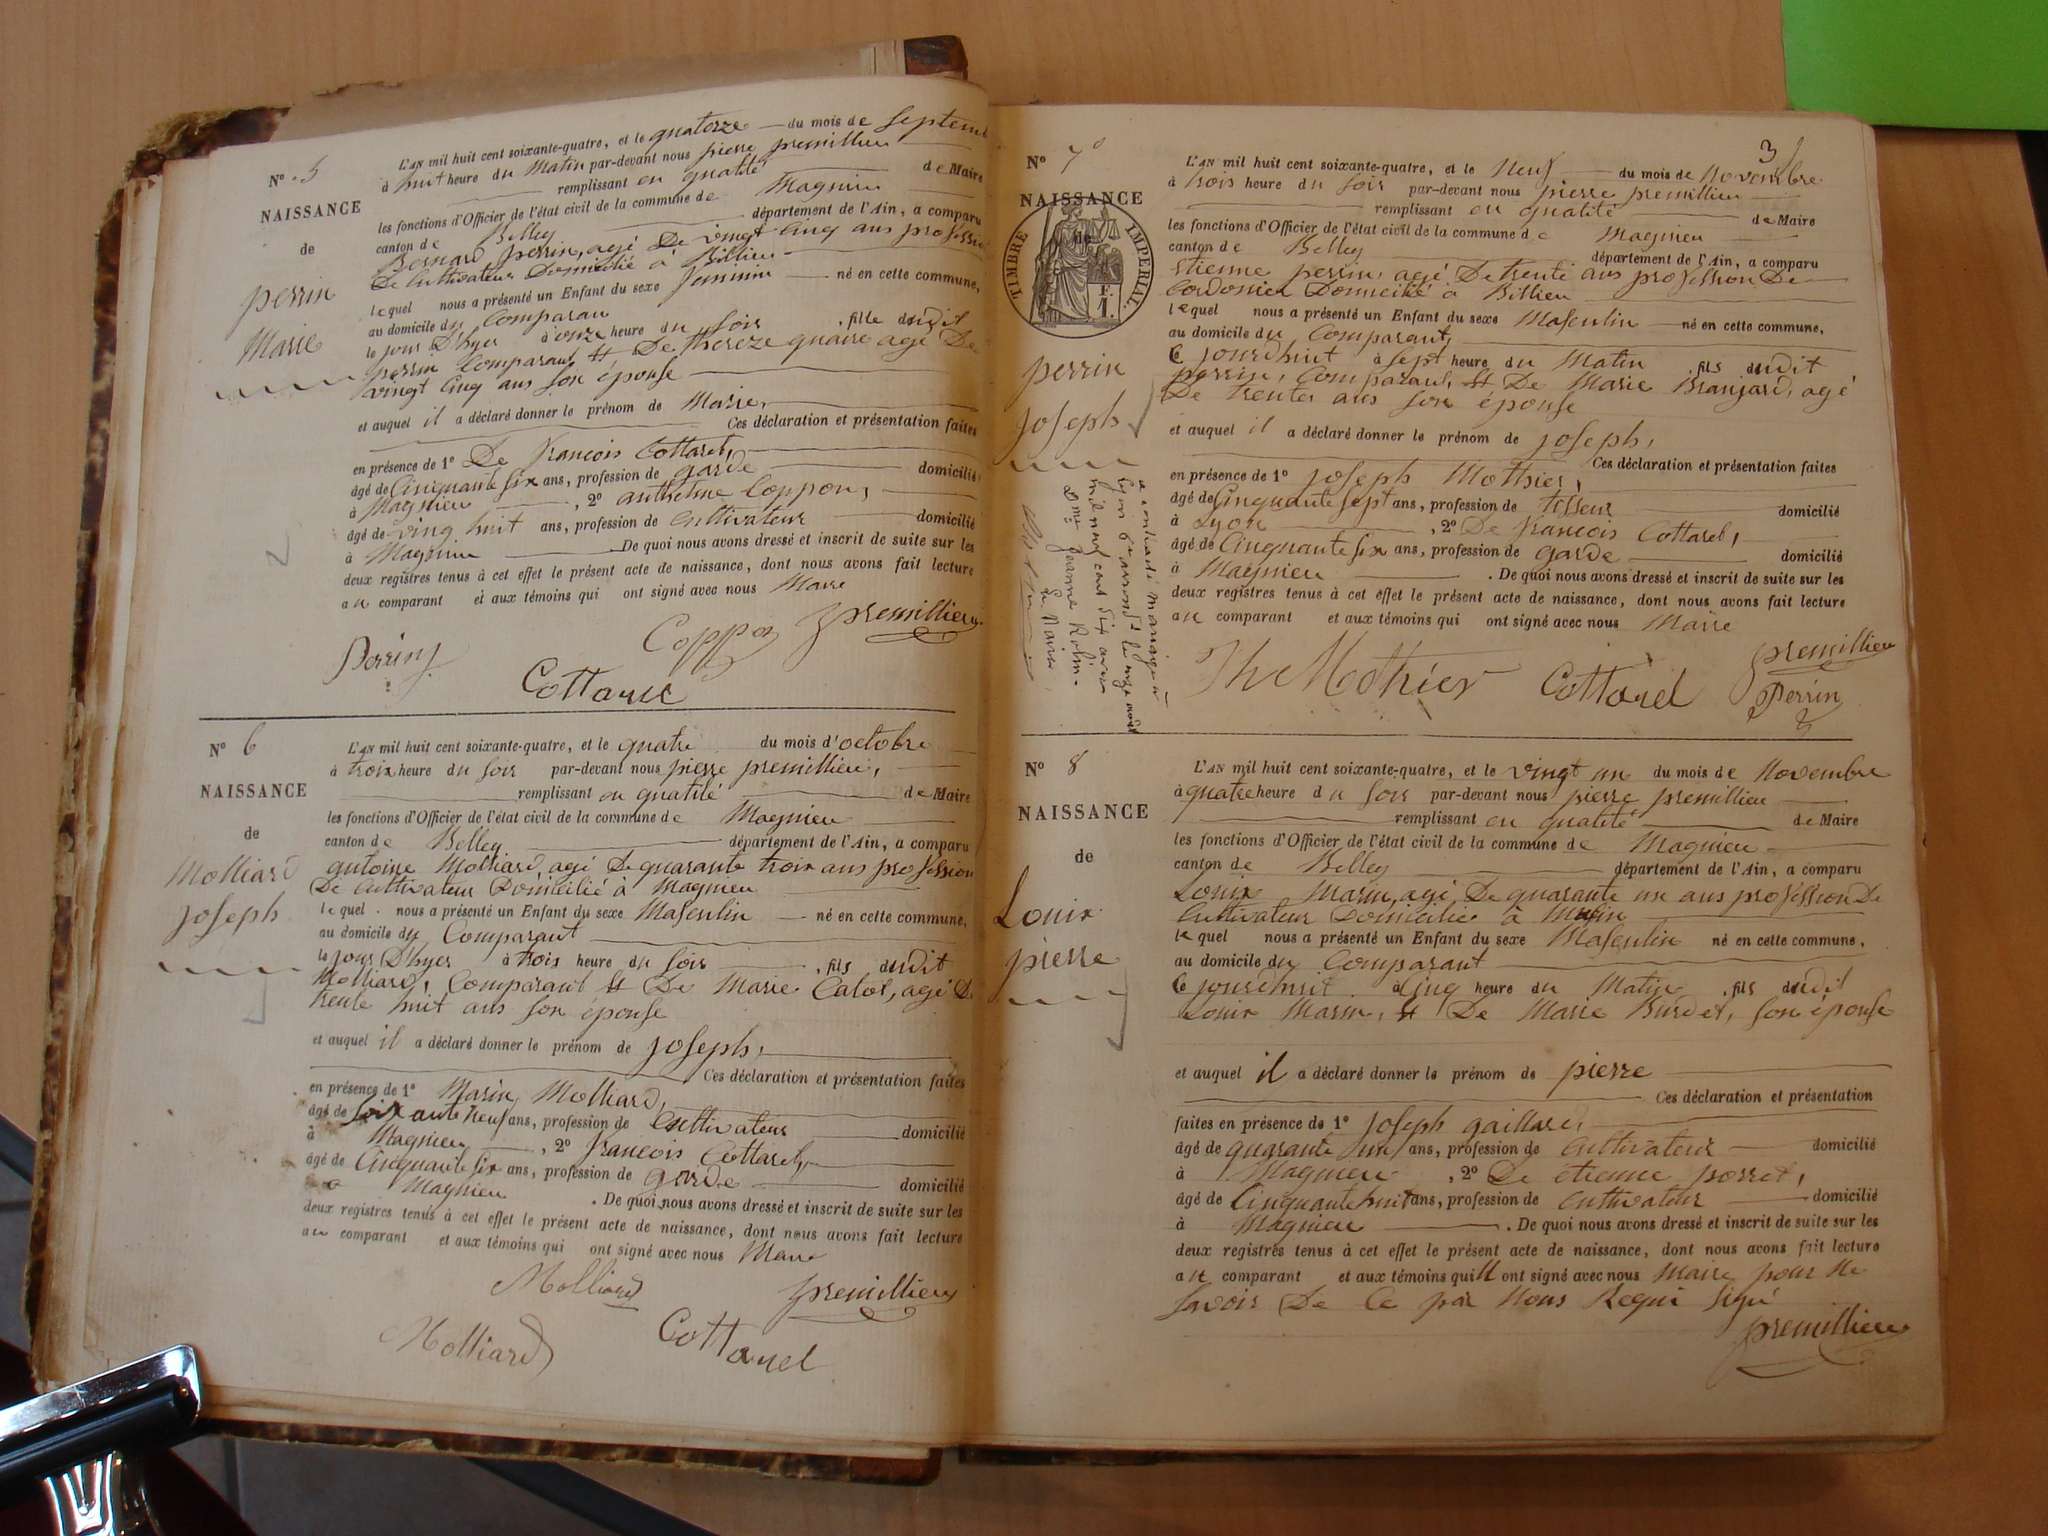 N° 5
NAISSANCE
de
perrin
Marie
L'AN mil huit cent soixante-quatre, et le quatorze du mois de Septem
à huit heure du Matin par-devant nous pierre premillieu
remplissant en qualité de Maire
les fonctions d'Officier de l'état civil de la commune de Magnieu
canton de Belley département de l'Ain, a comparu
Bernard perrin, agé De vingt Cinq ans profession
De Cultivateur Domicilié à Billieu
lequel nous a présenté un Enfant du sexe feminin né en cette commune,
au domicile du Comparan
le jour D'hyer à onze heure du soir, fille dudit
perrin Comparant et De thereze quaire agé De
vingt Cinq ans son épouse
et auquel il a déclaré donner le prénom de Marie,
Ces déclaration et présentation faites
en présence de 1° De francois Cottaret,
âgé de Cinquante six ans, profession de garde domicilié
à Magnieu, 2° anthelme Coppon,
âgé de ving huit ans, profession de Cultivateur domicilié
à Magnieu De quoi nous avons dressé et inscrit de suite sur les
deux registres tenus à cet effet le présent acte de naissance, dont nous avons fait lecture
au comparant et aux témoins qui ont signé avec nous Maire
Perrin Coppon premillieu
Cottarel
N° 6
NAISSANCE
de
Molliard
joseph
L'AN mil huit cent soixante-quatre, et le quatre du mois d'octobre
à troix heure du soir par-devant nous pierre premillieu,
remplissant en qualité de Maire
les fonctions d'Officier de l'état civil de la commune de Magnieu
canton de Belley département de l'Ain, a comparu
antoine Molliard, agé De quarante troix ans profession
De Cultivateur Domicilié à Magnieu
lequel nous a présenté un Enfant du sexe Masculin né en cette commune,
au domicile du Comparant
le jour D'hyer à trois heure du soir, fils dudit
Molliard, Comparant et De Marie Calot, agé De
trente huit ans son épouse
et auquel il a déclaré donner le prénom de joseph,
Ces déclaration et présentation faites
en présence de 1° Marin Molliard,
âgé de soixante neuf ans, profession de Cultivateur domicilié
à Magnieu, 2° francois Cottaret,
âgé de Cinquante six ans, profession de garde domicilié
à Magnieu. De quoi nous avons dressé et inscrit de suite sur les
deux registres tenus à cet effet le présent acte de naissance, dont nous avons fait lecture
au comparant et aux témoins qui ont signé avec nous Maire
Molliard premillieu
Molliard Cottarel
3
N° 7
NAISSANCE
de
TIMBRE IMPERIAL
F.
1.
perrin
joseph
a contracté mariage à
Lyon
mil neuf cent six avec
Dme Jeanne Robin.
Le Maire
L'AN mil huit cent soixante-quatre, et le Neuf du mois de Novembre
à trois heure du soir par-devant nous pierre premillieu
remplissant en qualité de Maire
les fonctions d'Officier de l'état civil de la commune de Magnieu
canton de Belley département de l'Ain, a comparu
Etienne perrin, agé De trente ans profession De
Cordonier Domicilié à Billieu
lequel nous a présenté un Enfant du sexe Masculin né en cette commune,
au domicile du Comparant,
Ce jourdhuit à sept heure du Matin, fils dudit
perrin, Comparant, et De Marie Branjard, agé
De trente ans son épouse
et auquel il a déclaré donner le prénom de joseph,
Ces déclaration et présentation faites
en présence de 1° joseph Mothier,
âgé de Cinquante sept ans, profession de tisseur domicilié
à Lyon, 2° De francois Cottaret,
âgé de Cinquante six ans, profession de garde domicilié
à Magnieu. De quoi nous avons dressé et inscrit de suite sur les
deux registres tenus à cet effet le présent acte de naissance, dont nous avons fait lecture
au comparant et aux témoins qui ont signé avec nous Maire
Jh Mothier Cottarel premillieu
Perrin
N° 8
NAISSANCE
de
Louix
pierre
L'AN mil huit cent soixante-quatre, et le vingt un du mois de Novembre
à quatre heure du soir par-devant nous pierre premillieu
remplissant en qualité de Maire
les fonctions d'Officier de l'état civil de la commune de Magnieu
canton de Belley département de l'Ain, a comparu
Louix Marin, agé De quarante un ans profession De
Cultivateur Domicilié à
lequel nous a présenté un Enfant du sexe Masculin né en cette commune,
au domicile du Comparant
Ce jourdhuit à Cinq heure du Matin, fils dudit
Louix Marin, et De Marie Burdet, son épouse
et auquel il a déclaré donner le prénom de pierre
Ces déclaration et présentation
faites en présence de 1° joseph gaillard,
âgé de quarante ans, profession de Cultivateur domicilié
à Magnieu, 2° De étienne perret,
âgé de Cinquante huit ans, profession de Cultivateur domicilié
à Magnieu. De quoi nous avons dressé et inscrit de suite sur les
deux registres tenus à cet effet le présent acte de naissance, dont nous avons fait lecture
au comparant et aux témoins qui n ont signé avec nous Maire pour ne
savoir De Ce par Nous Requi signé
premillieu